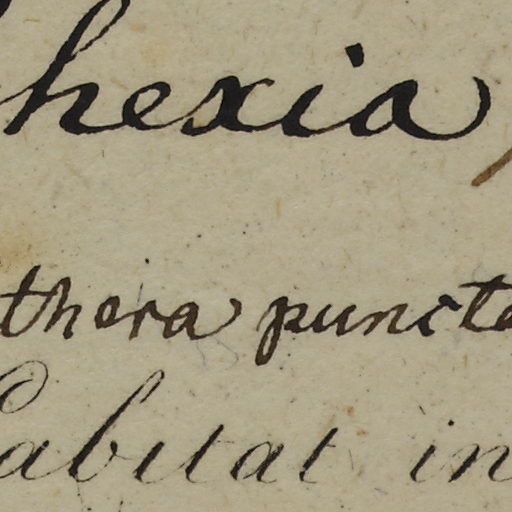 hexia
thera puncta
Habitat in